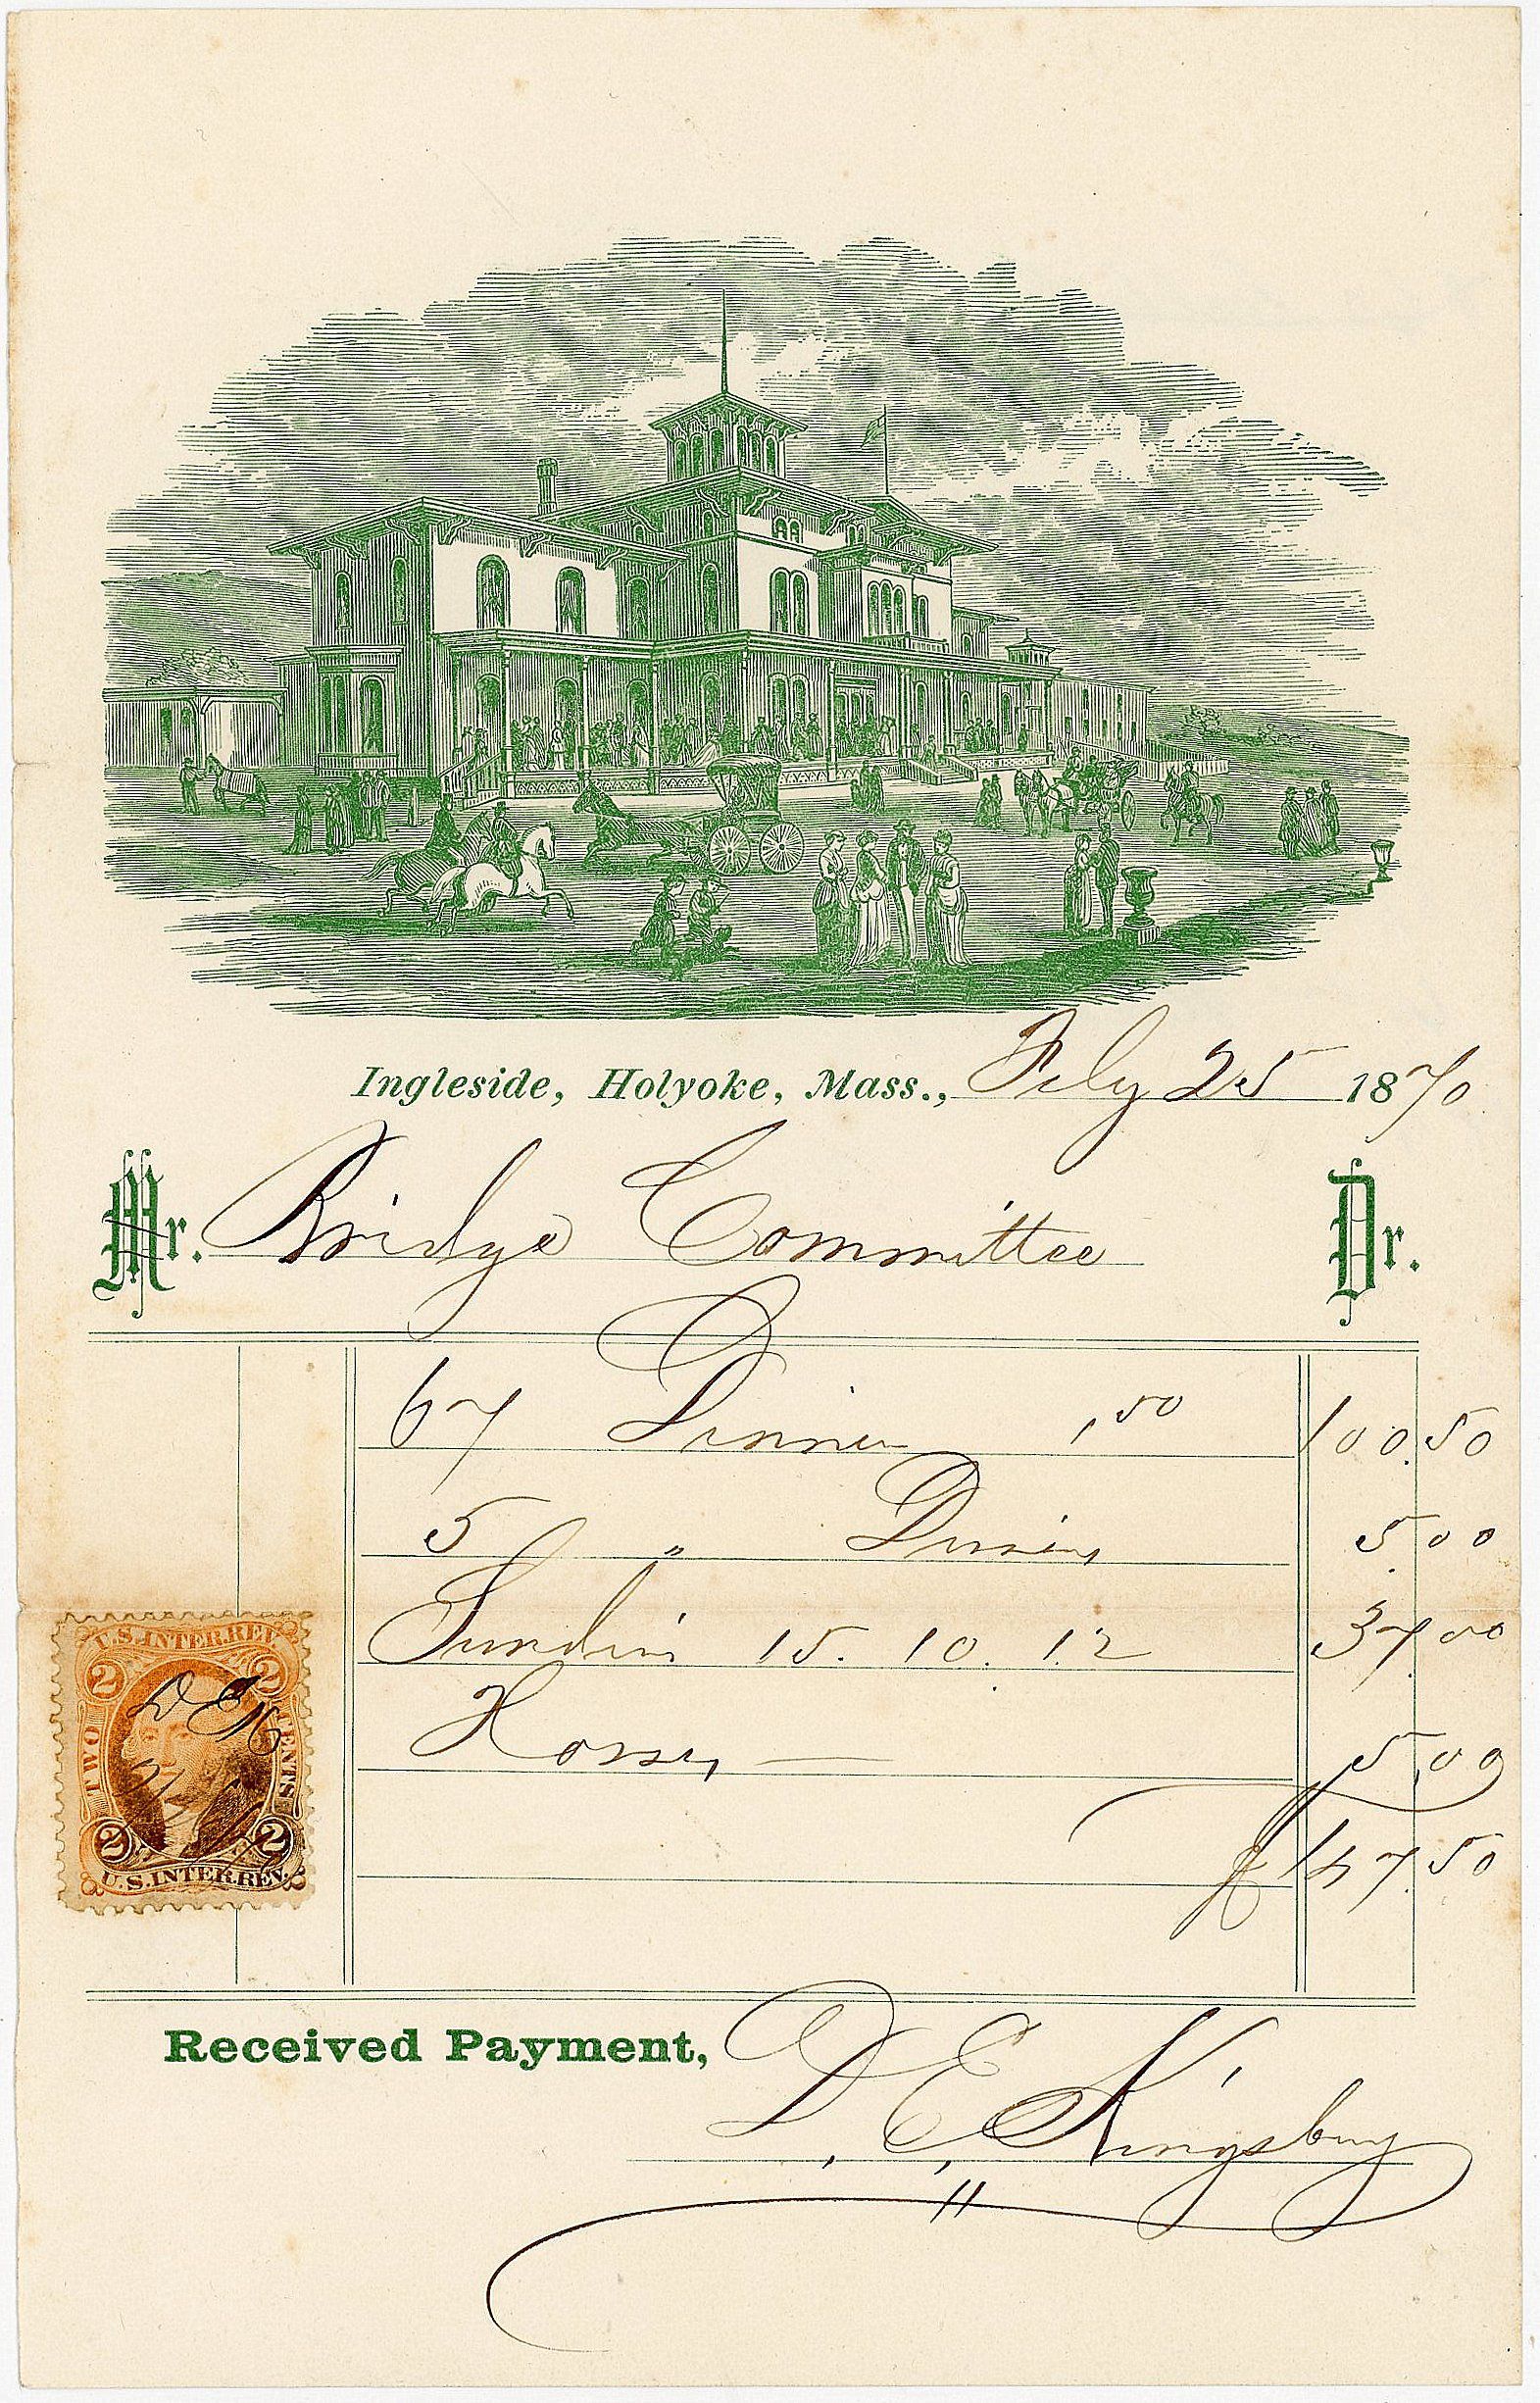 Ingleside, Holyoke, Mass., Feby 25 1870
Mr. Bridge Committee Dr.
67 Dinner 1,50 100.50
5 " Drivers 5.00
Sundries 15. 10. 12 37.00
Horses — 5.00
$ 147.50
U.S. INTER. REV.
2 2
TWO CENTS
DEK
2 2
U.S. INTER. REV.
Received Payment,
D. E. Kingsbury